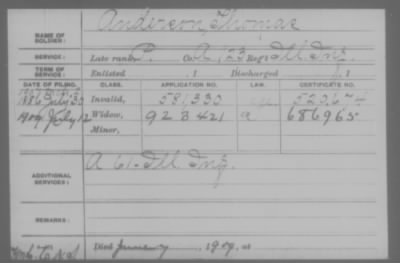 Anderson, Thomas
NAME OF SOLDIER:
SERVICE: Late rank P. Co. A, 23 Reg't Ill. Inf.
TERM OF SERVICE: Enlisted , 1 Discharged , 1
DATE OF FILING. CLASS. APPLICATION NO. LAW. CERTIFICATE NO.
1886 July 30 Invalid, 581,330
1909 July 12 Widow, 923421 686965
Minor,
ADDITIONAL SERVICES: A 61 Ill. Inf.
REMARKS:
Died 1909, at